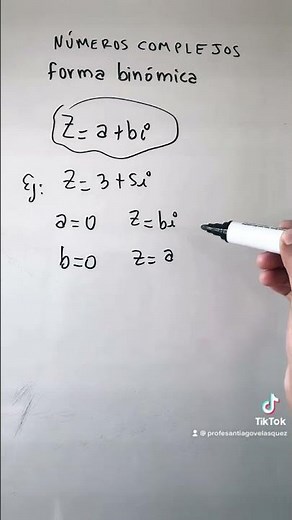 NÚMEROS COMPLEJOS
forma binómica
Z = a + bi
Ej: Z = 3 + 5i
a = 0 Z = bi
b = 0 Z = a
TikTok
@profesantiagovelasquez